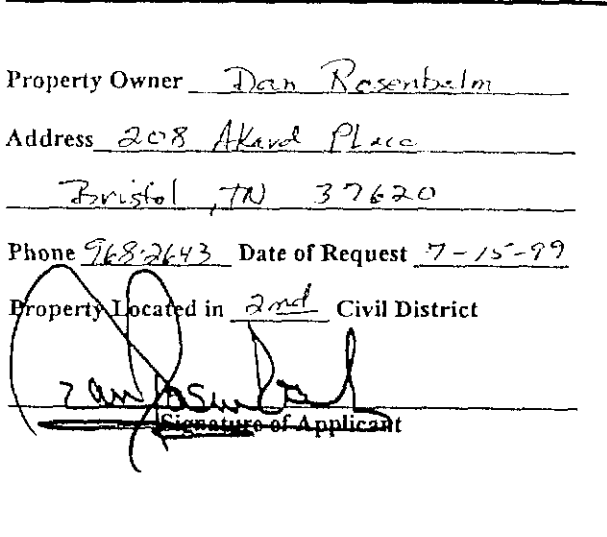 Property Owner Dan Rosenbalm
Address 208 Akard Place
Bristol, TN 37620
Phone 968-2643 Date of Request 7-15-99
Property Located in 2nd Civil District
Signature of Applicant